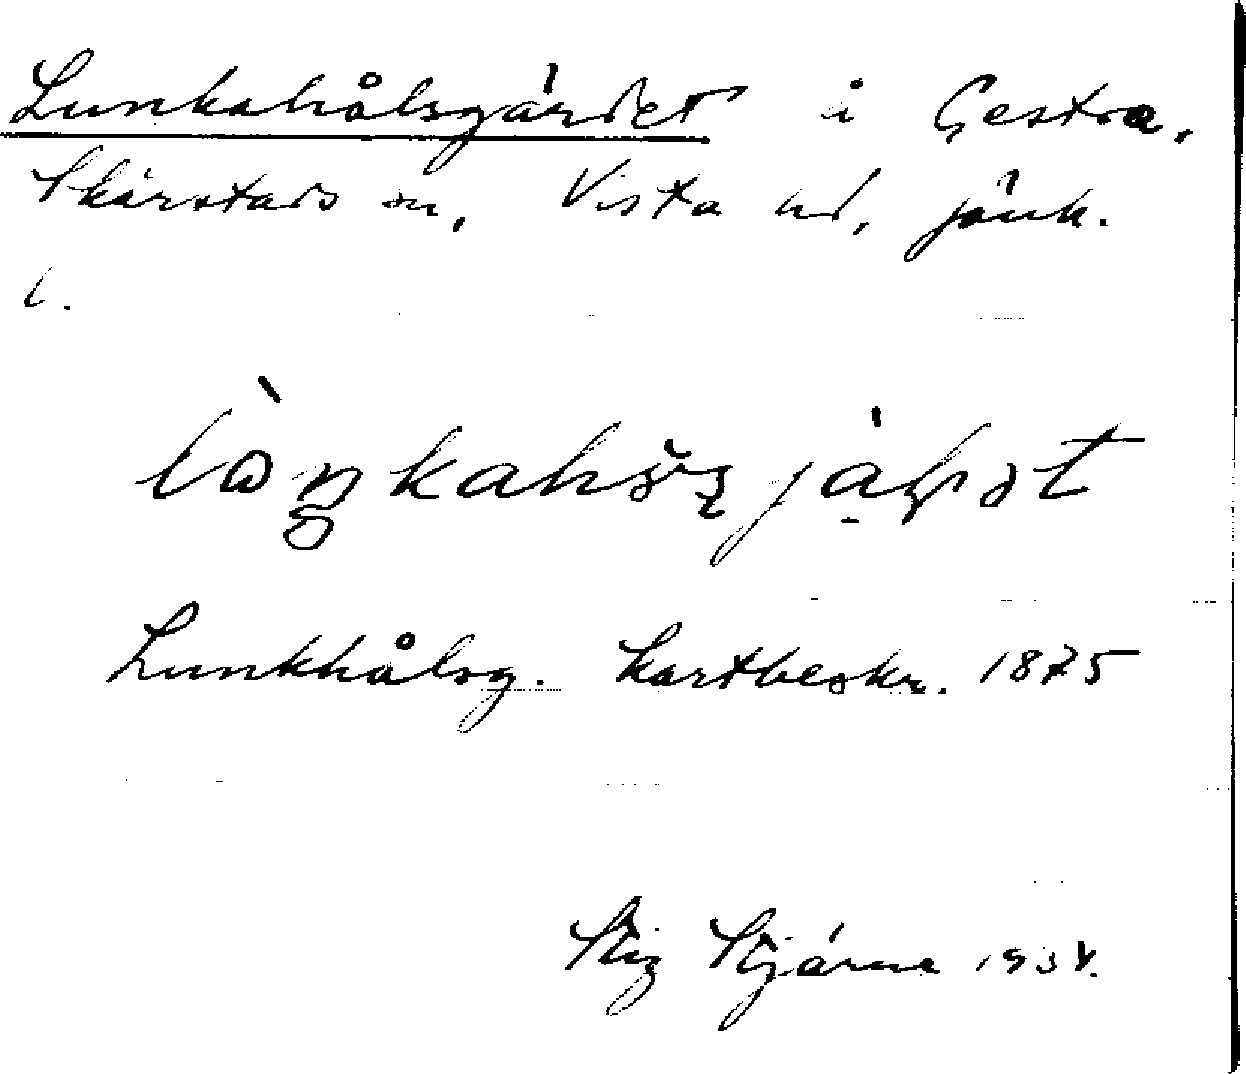 Lunkahålsgärdet å Gestra,
Skärstads sn, Vista hd, Jönk.
l.
Lunkhålsg. Kartbeskr. 1875
Stig Stjärne 1934.